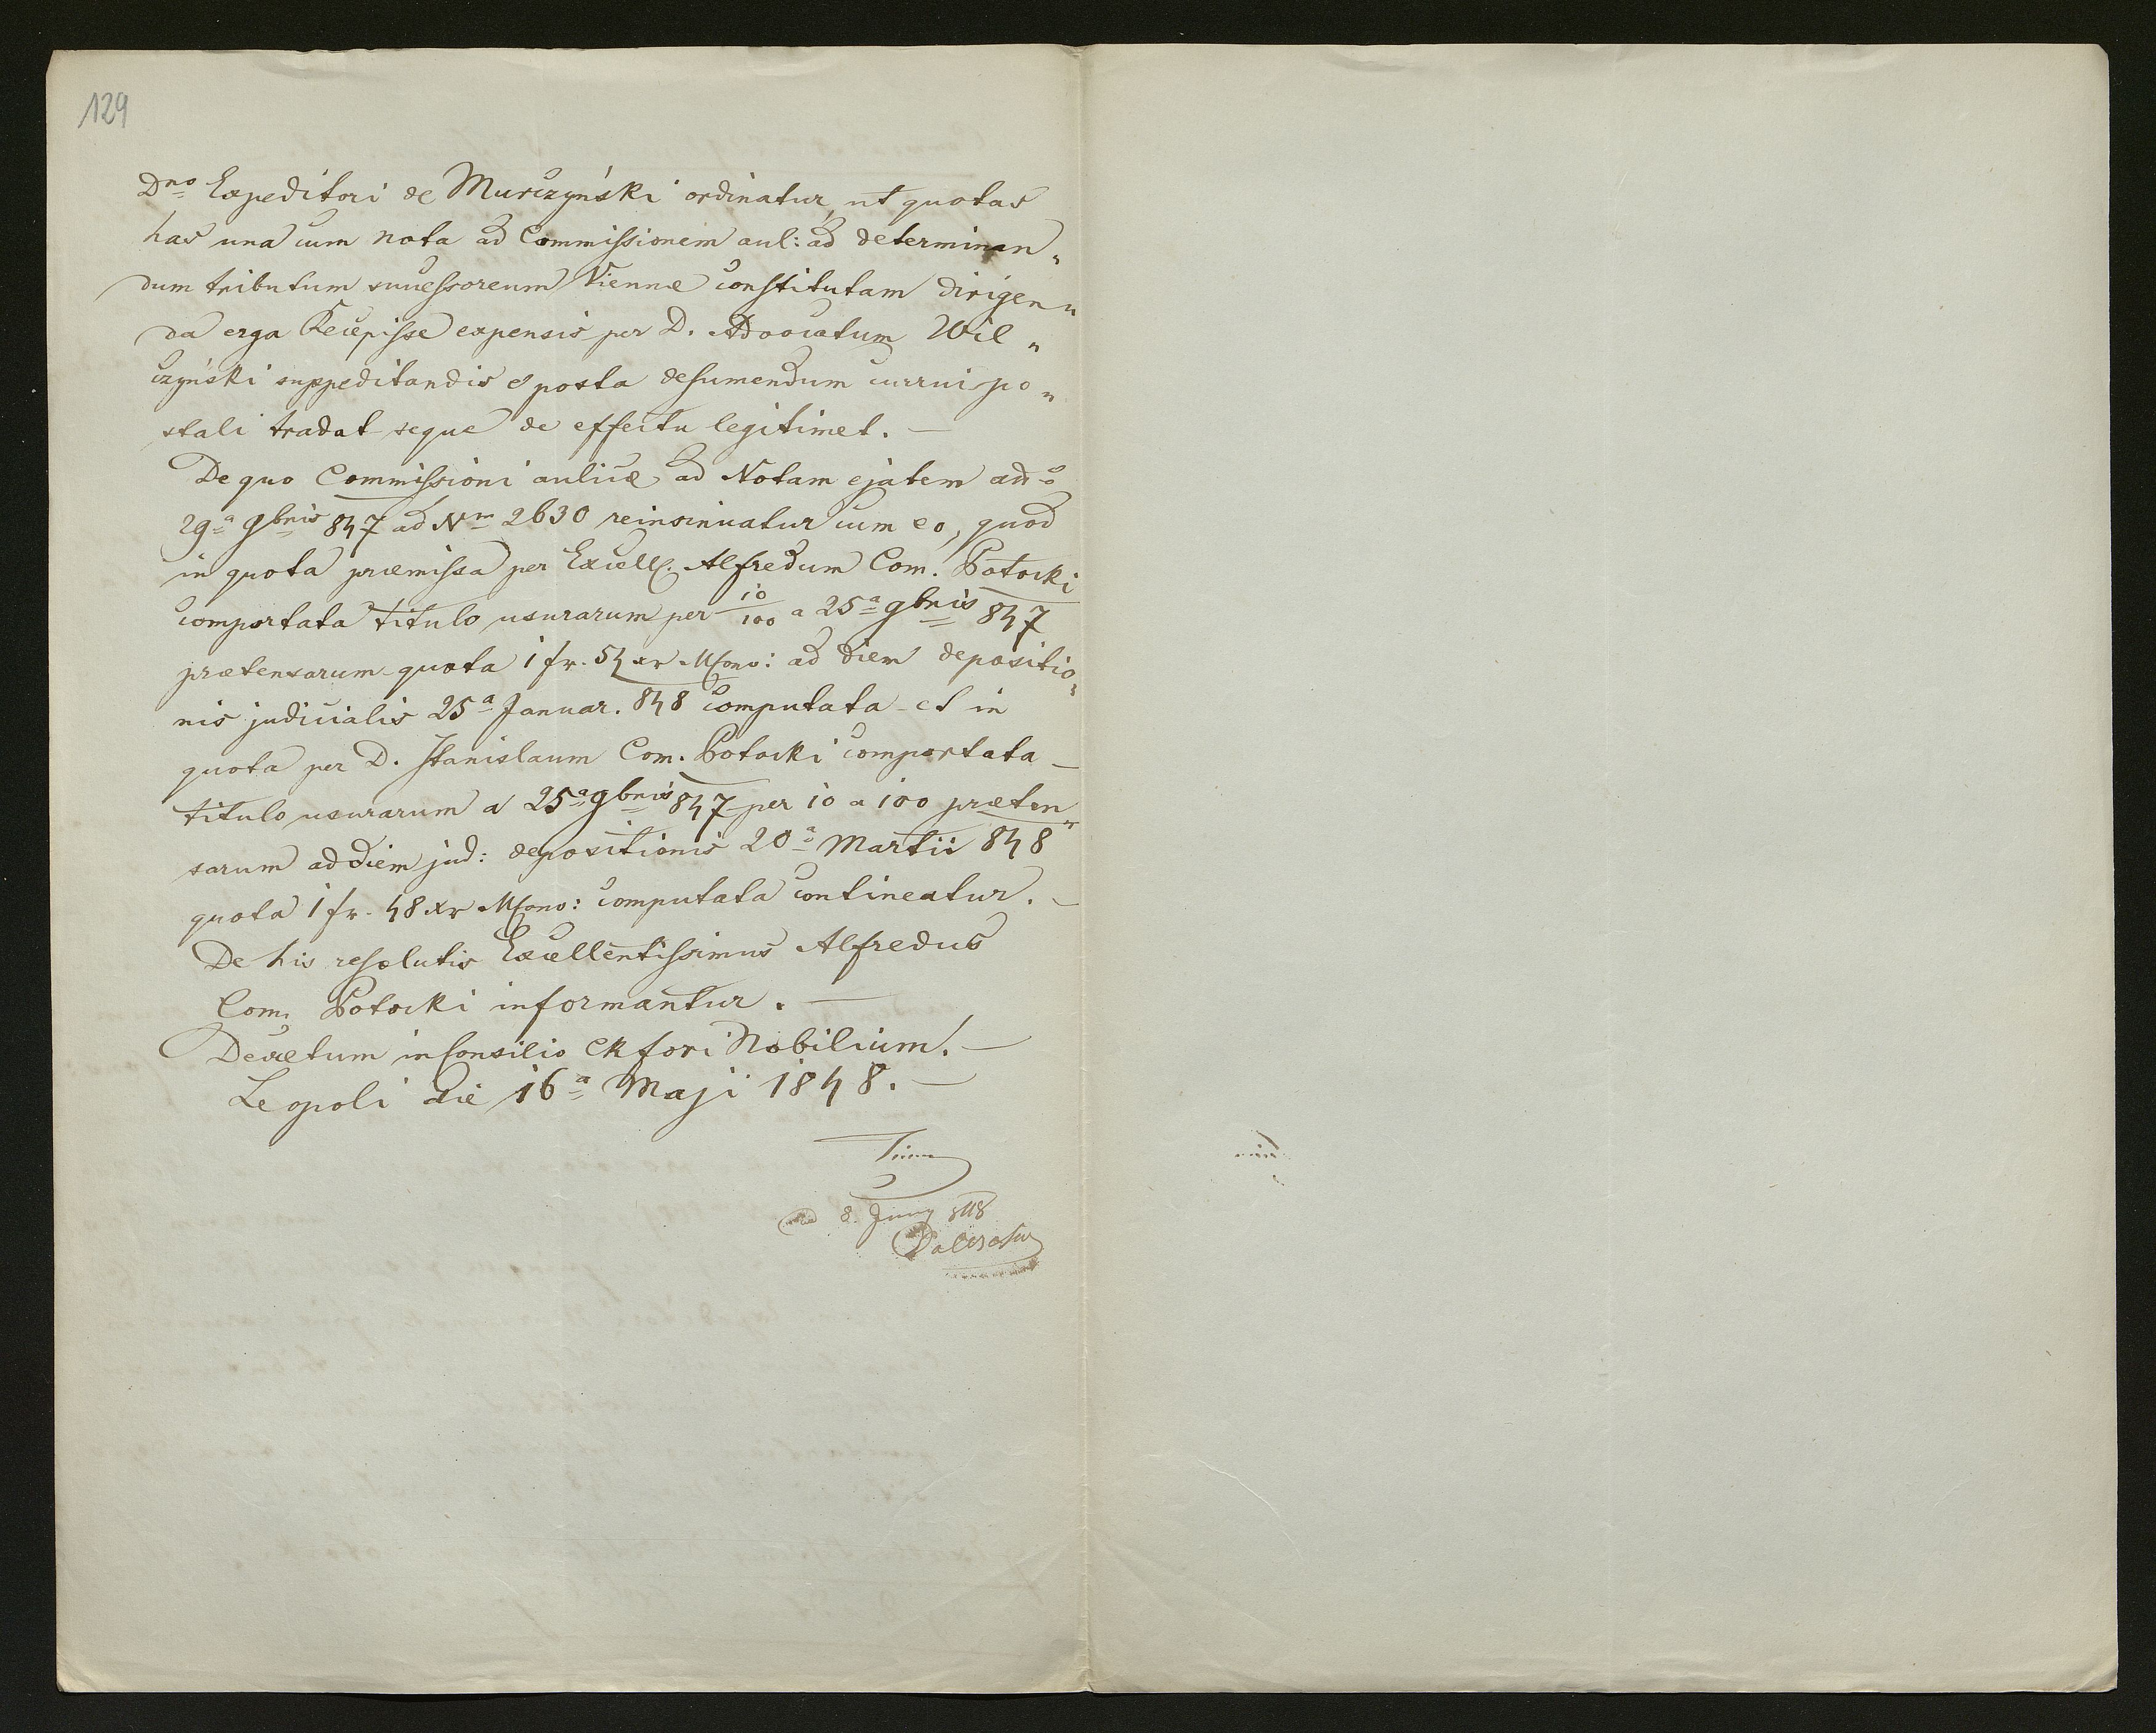 129
Dno Expeditori de Murczyński ordinatur, ut quotas
has una cum nota ad Commissionem aul: ad determinan„
dum tributum successoreum Viennæ constitutam dirigen„
da erga Recepisse expensis per D. Advocatum Wil„
czyński suppeditandis e posta desumendum currui po„
stali tradat seque de effectu legitimet. —
De quo Commissioni aulicæ ad Notam ejatem ddo
29a 9bris 847 ad Nm 2630 reinsinuatur cum eo, quod
in quota præmissa per Excell. Alfredum Com. Potocki
comportata titulo usurarum per 10/100 a 25a 9bris 847
prætensarum quota 1 fr. 54 xr MConv: ad diem depositio„
nis judicialis 25a Januar. 848 computata et in
quota per D. Stanislaum Com. Potocki comportata —
titulo usurarum a 25a 9bris 847 per 10 a 100 præten„
sarum ad diem jud: depositionis 20a Martii 848
quota 1 fr. 48 xr MConv: computata contineatur. —
De his resolutis Excellentissimus Alfredus
Com. Potocki informantur. —
Decretum in Consilio CR fori Nobilium. —
Leopoli die 16a Maji 1848. —
8. Juny 848